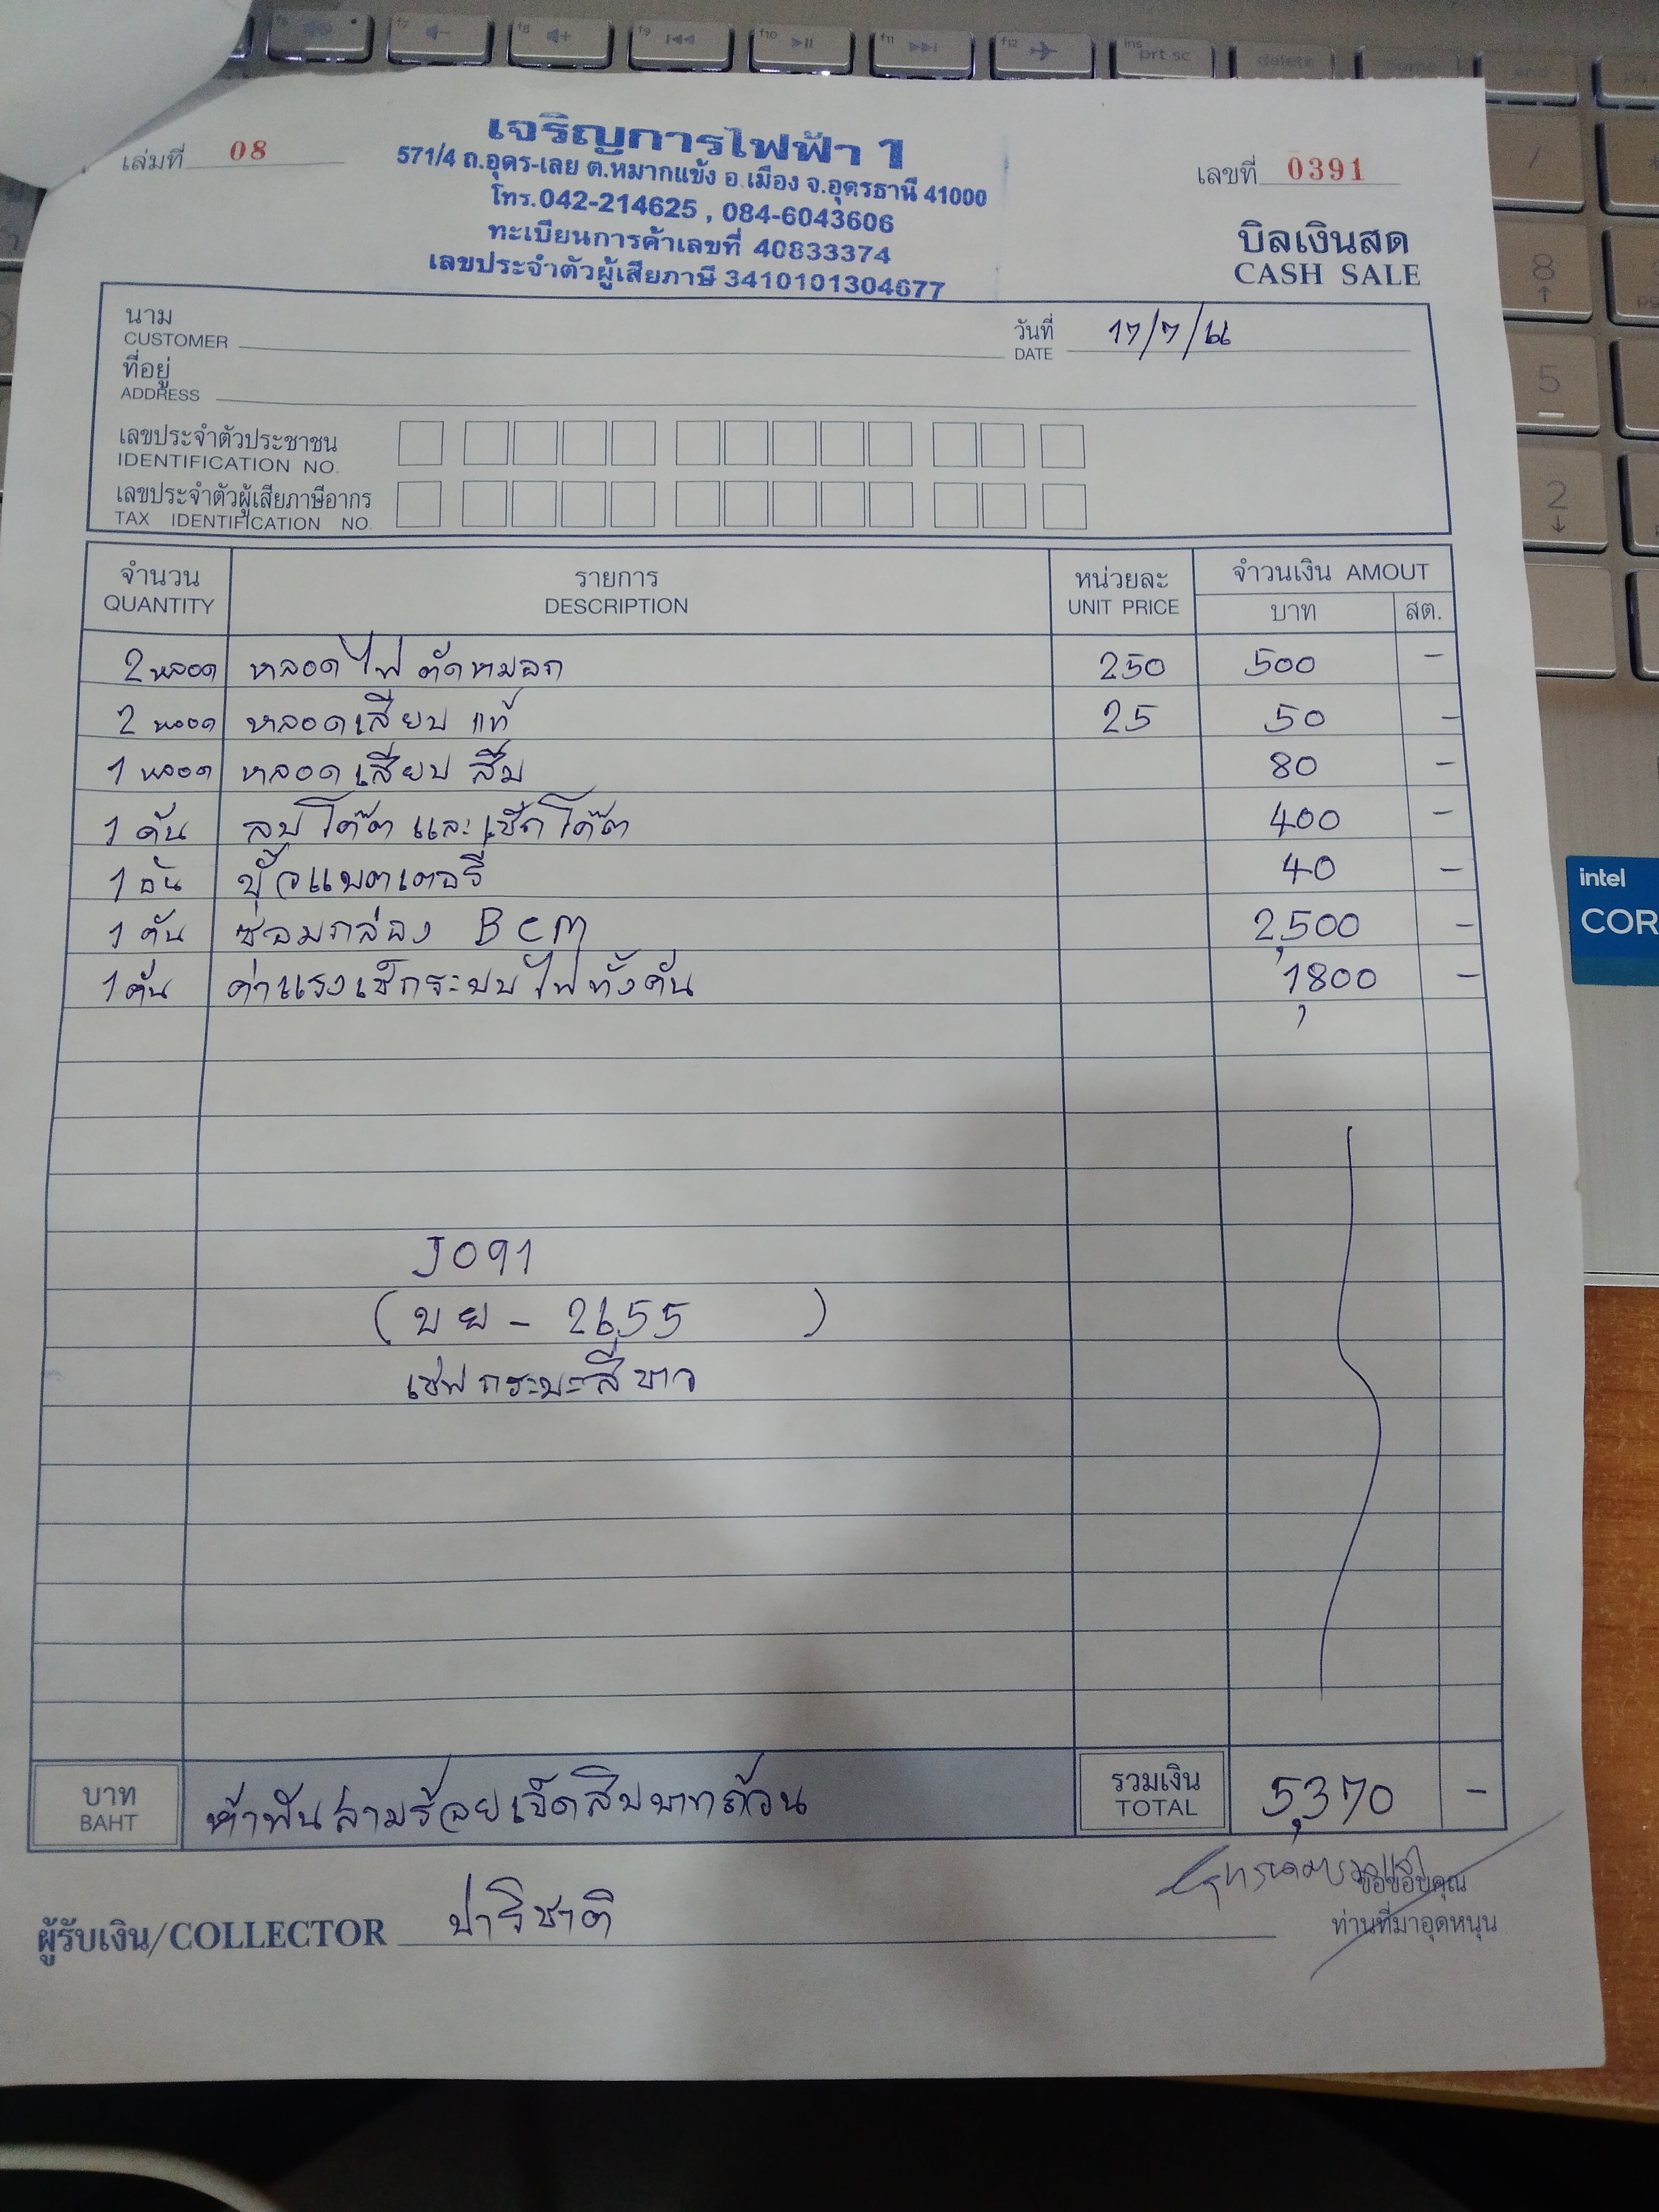 เล่มที่ 08
เจริญการไฟฟ้า 1
571/4 ถ.อุดร-เลย ต.หมากแข้ง อ.เมือง จ.อุดรธานี 41000
โทร.042-214625 , 084-6043606
ทะเบียนการค้าเลขที่ 40833374
เลขประจำตัวผู้เสียภาษี 3410101304677
เลขที่ 0391
บิลเงินสด
CASH SALE
นาม
CUSTOMER
วันที่ 17/7/66
DATE
ที่อยู่
ADDRESS
เลขประจำตัวประชาชน
IDENTIFICATION NO.
เลขประจำตัวผู้เสียภาษีอากร
TAX IDENTIFICATION NO.
จำนวน รายการ หน่วยละ จำวนเงิน AMOUT
QUANTITY DESCRIPTION UNIT PRICE บาท สต.
2 หลอด หลอดไฟ ตัดหมอก 250 500 -
2 หลอด หลอดเสียบ แท้ 25 50 -
1 หลอด หลอดเสียบ ส้ม 80 -
1 คัน ลบโค๊ต และเช็กโค๊ต 400 -
1 อัน ขั้วแบตเตอรี่ 40 -
1 คัน ซ่อมกล่อง BCM 2,500 -
1 คัน ค่าแรงเช็กระบบไฟทั้งคัน 1,800 -
J091
(บย - 2655 )
เชฟกระบะสีขาว
บาท ห้าพันสามร้อยเจ็ดสิบบาทถ้วน รวมเงิน 5,370 -
BAHT TOTAL
ผู้รับเงิน/COLLECTOR ปาริชาติ
ขอขอบคุณ
ท่านที่มาอุดหนุน
f7
f8
f9
f10
f11
f12
ins
prt sc
delete
home
end
8
5
2
intel
COR